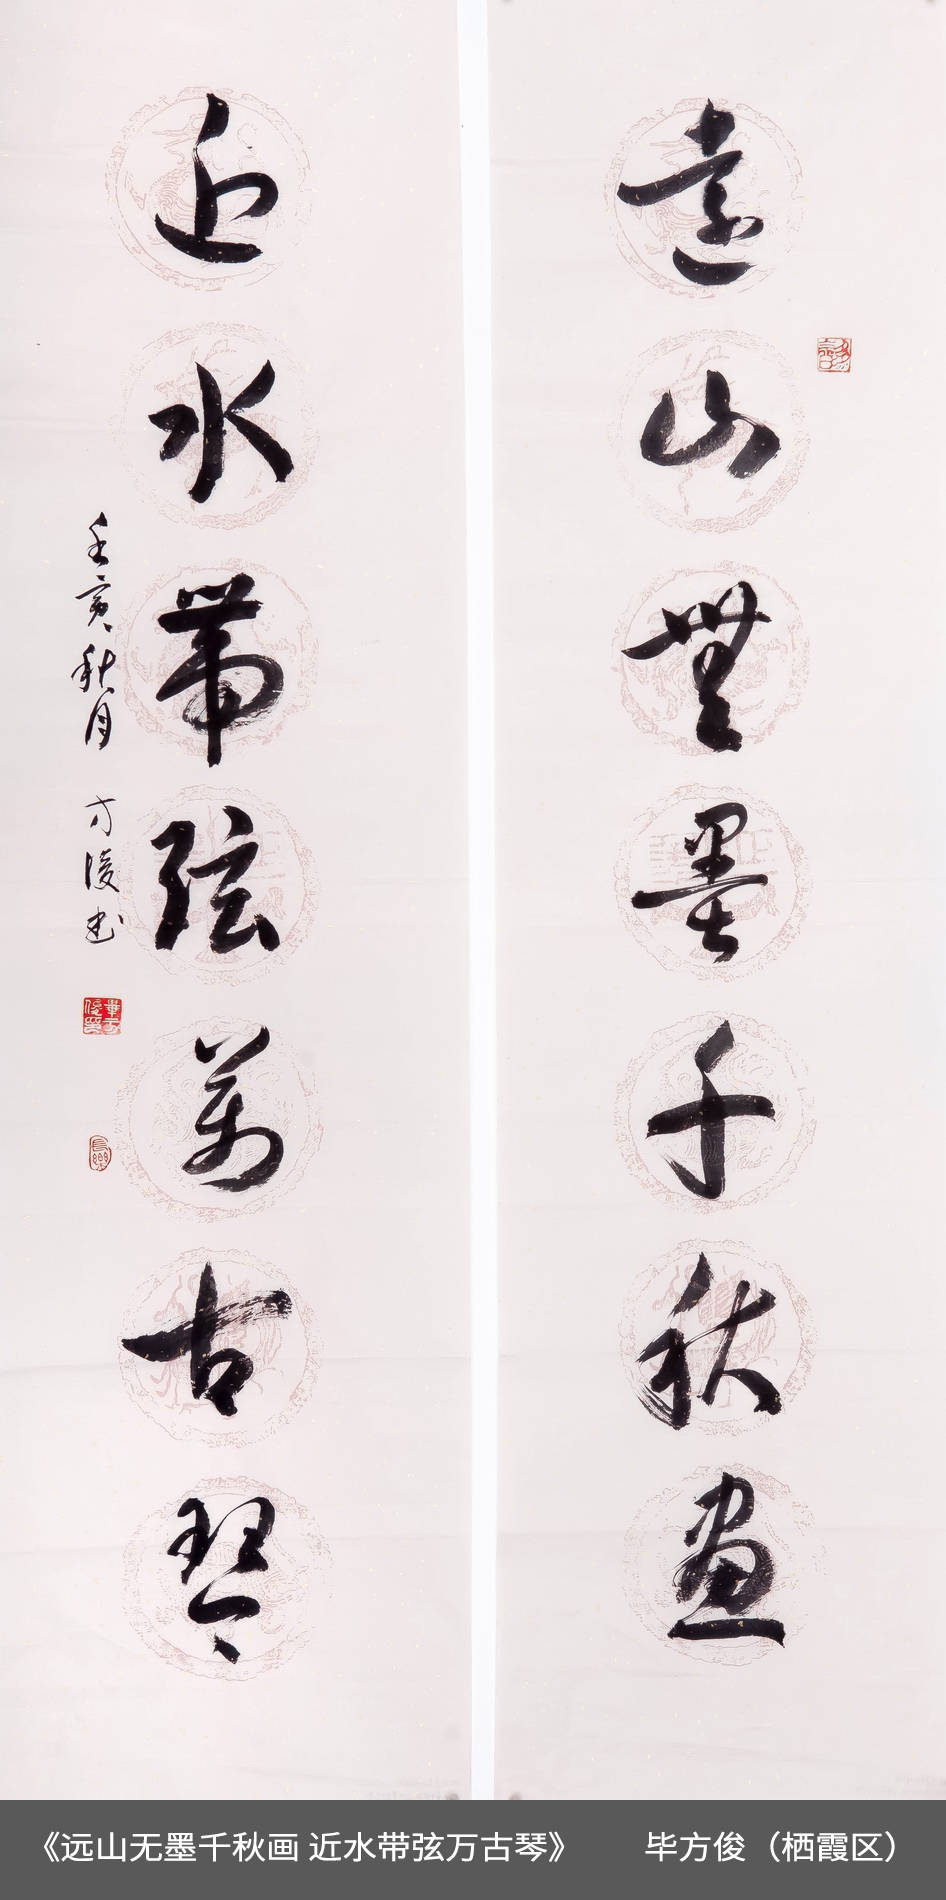 遠山無墨千秋畫
近水帶弦萬古琴
壬寅秋月 方俊书
《远山无墨千秋画 近水带弦万古琴》 毕方俊（栖霞区）